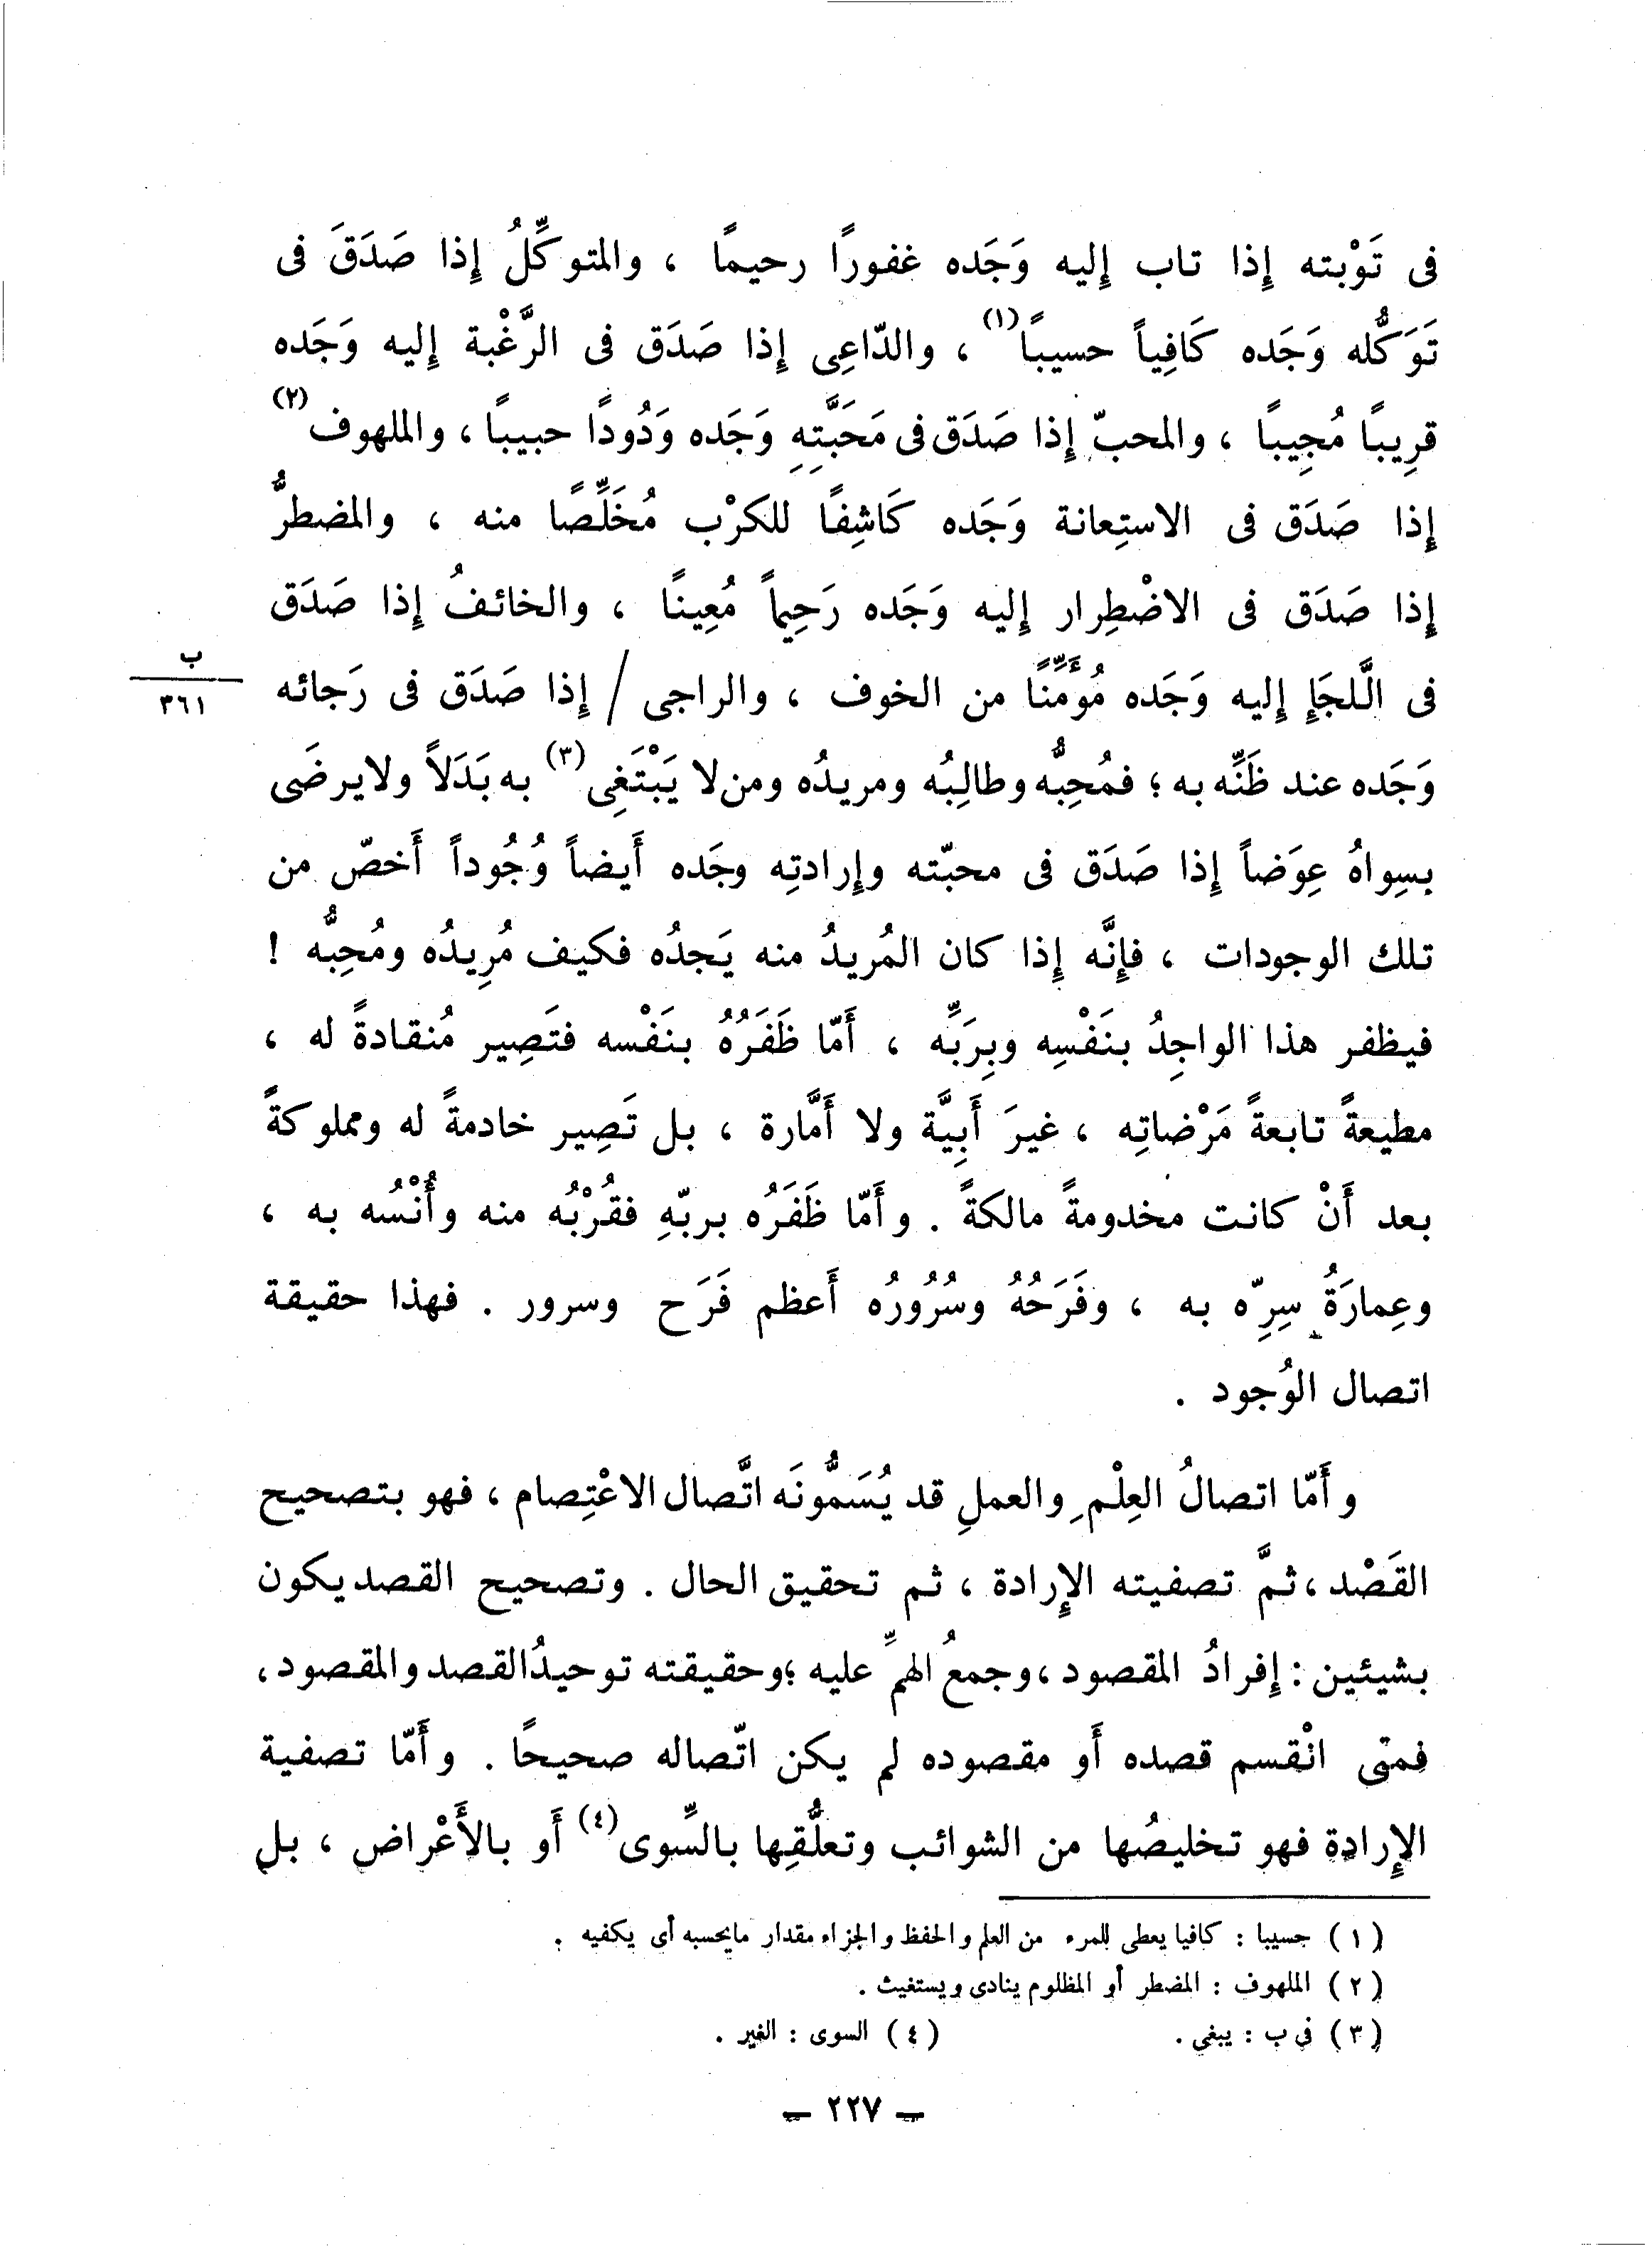 فى تَوْبته إِذا تاب إِليه وَجَده غفورًا رحيمًا ، والمتوكِّلُ إِذا صَدَقَ فى
تَوَكُّله وَجَده كَافِياً حسيبًا (١) ، والدّاعِى إِذا صَدَق فى الرَّغْبة إِليه وَجَده
قرِيبًا مُجِيبًا ، والمحبّ إِذا صَدَق فى مَحَبَّتِهِ وَجَده وَدُودًا حبيبًا ، والملهوف (٢)
إِذا صَدَق فى الاستِعانة وَجَده كَاشِفًا للكرْب مُخَلِّصًا منه ، والمضطرُّ
إِذا صَدَق فى الاضْطِرار إِليه وَجَده رَحِيماً مُعِينًا ، والخائفُ إِذا صَدَق
فى الَّلجَإِ إِليه وَجَده مُؤَمِّنًا من الخوف ، والراجى / إِذا صَدَق فى رَجائه
ب
٣٦١
وَجَده عند ظَنِّه به ؛ فمُحِبُّه وطالِبُه ومريدُه ومن لا يَبْتَغِى (٣) به بَدَلاً ولا يرضَى
بسِواهُ عِوَضاً إِذا صَدَق فى محبّته وإِرادتِه وجَده أَيضاً وُجُوداً أَخصّ من
تلك الوجودات ، فإِنَّه إِذا كان المُريدُ منه يَجدُه فكيف مُرِيدُه ومُحِبُّه !
فيظفر هذا الواجِدُ بنَفْسِه وبِرَبِّه ، أَمّا ظَفَرُهُ بنَفْسه فتَصِير مُنقادةً له ،
مطيعةً تابعةً مَرْضاتِه ، غيرَ أَبِيَّة ولا أَمَّارة ، بل تَصِير خادمةً له ومملوكةً
بعد أَنْ كانت مخدومةً مالكةً . وأَمّا ظَفَرُه بربّهِ فقُرْبُه منه وأُنْسُه به ،
وعِمارَةُ سِرِّه به ، وفَرَحُهُ وسُرُورُه أَعظم فَرَح وسرور . فهذا حقيقة
اتصال الوُجود .
وأَمّا اتصالُ العِلْمِ والعملِ قد يُسَمُّونَه اتَّصال الاعْتِصام ، فهو بتصحيح
القَصْد ، ثمَّ تصفيته الإِرادة ، ثم تحقيق الحال . وتصحيح القصد يكون
بشيئين : إِفرادُ المقصود ، وجمعُ الهمِّ عليه ؛ وحقيقته توحيدُ القصد والمقصود ،
فمتى انْقسم قصده أَو مقصوده لم يكن اتّصاله صحيحًا . وأَمّا تصفية
الإِرادة فهو تخليصُها من الشوائب وتعلُّقِها بالسِّوى (٤) أَو بالأَعْراض ، بل
(١) حسيبا : كافيا يعطى للمرء من العلم والحفظ والجزاء مقدار مايحسبه أى يكفيه .
(٢) الملهوف : المضطر أو المظلوم ينادى ويستغيث .
(٣) فى ب : يبغى . (٤) السوى : الغير .
— ٢٢٧ —